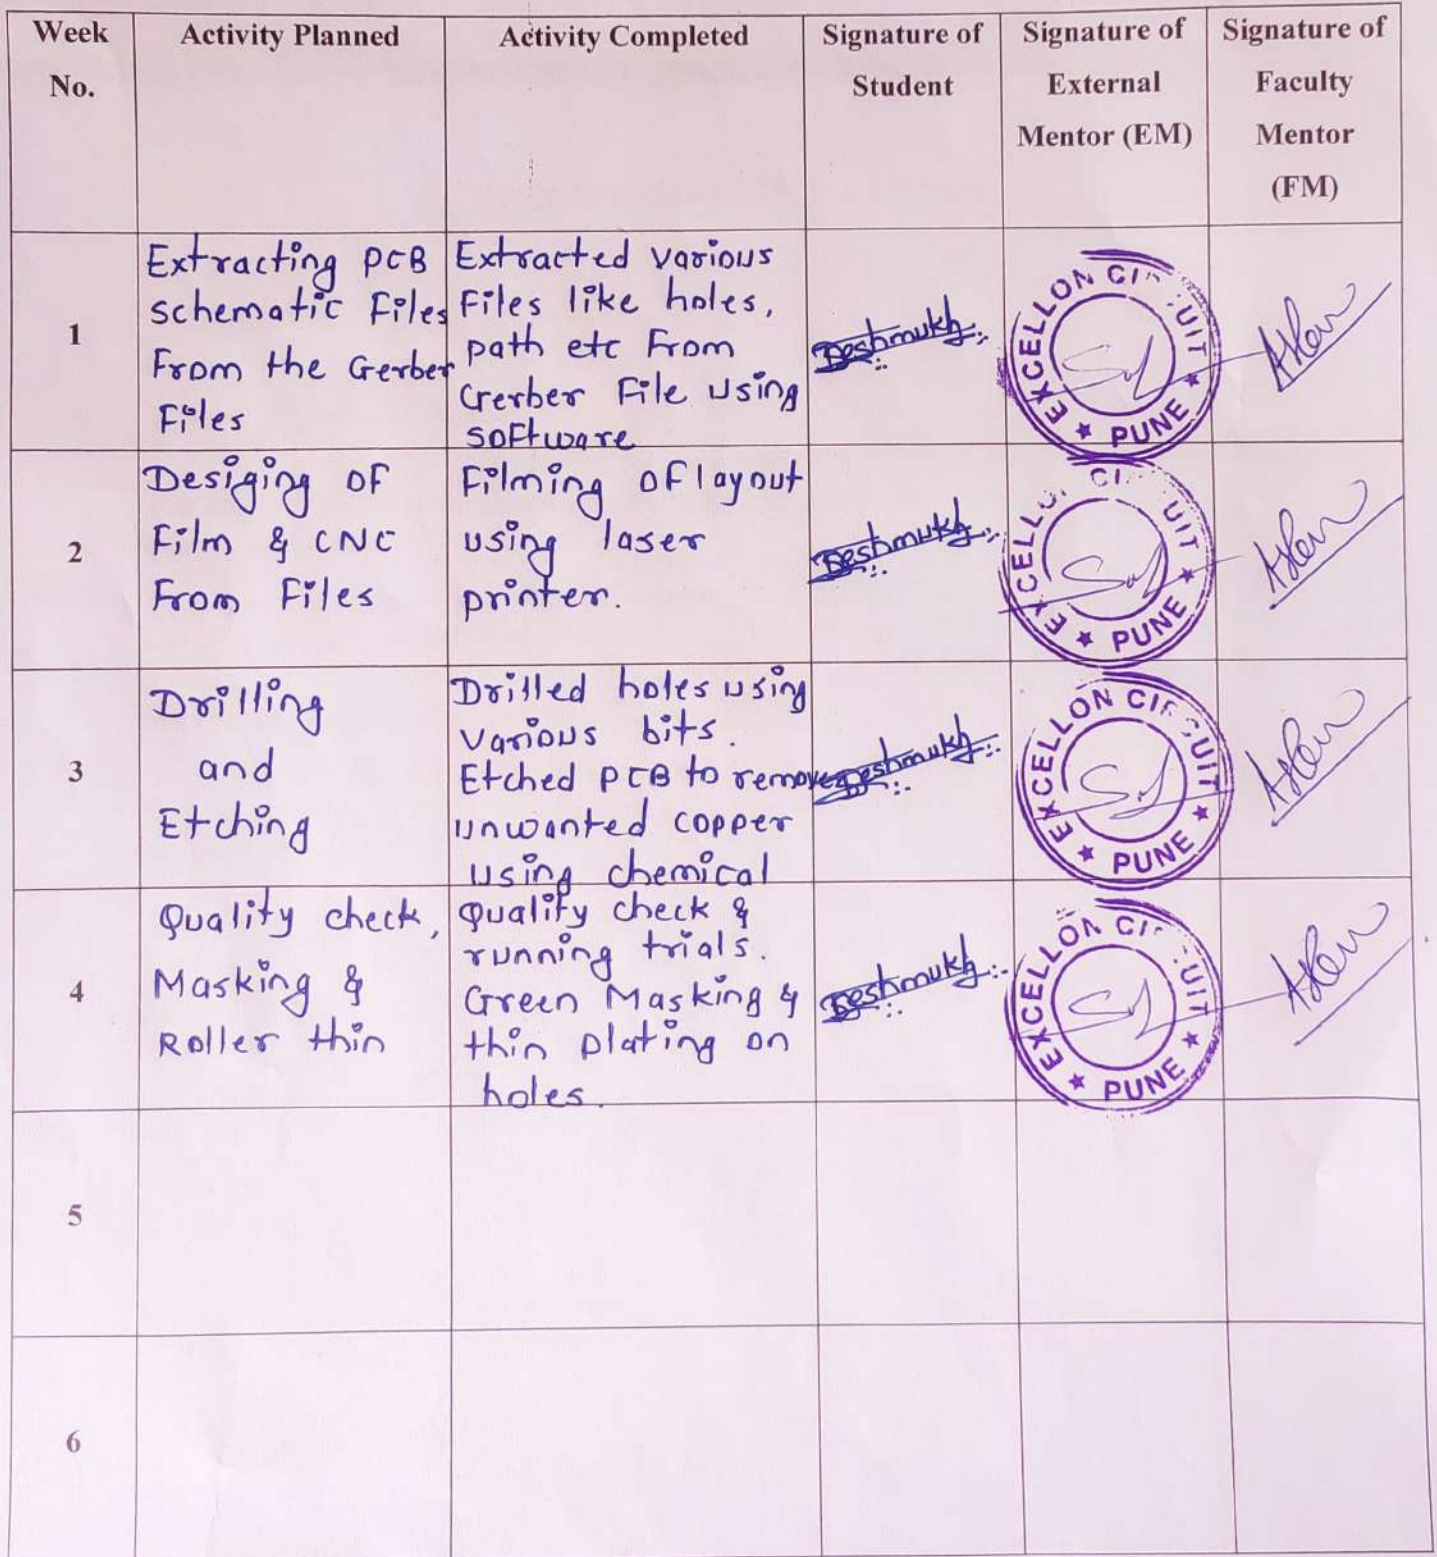 Week No.
Activity Planned
Activity Completed
Signature of Student
Signature of External Mentor (EM)
Signature of Faculty Mentor (FM)
1
Extracting PCB
schematic Files
From the Gerber
Files
Extracted various
Files like holes,
path etc From
Gerber File using
software
Deshmukh
EXCELLON CIRCUIT
★ PUNE ★
2
Desiging of
Film & CNC
From Files
Filming of layout
using laser
printer.
Deshmukh
EXCELLON CIRCUIT
★ PUNE ★
3
Drilling
and
Etching
Drilled holes using
various bits.
Etched PCB to remove
unwanted copper
using chemical
Deshmukh
EXCELLON CIRCUIT
★ PUNE ★
4
Quality check,
Masking &
Roller thin
Quality check &
running trials.
Green Masking &
thin plating on
holes.
Deshmukh
EXCELLON CIRCUIT
★ PUNE ★
5
6